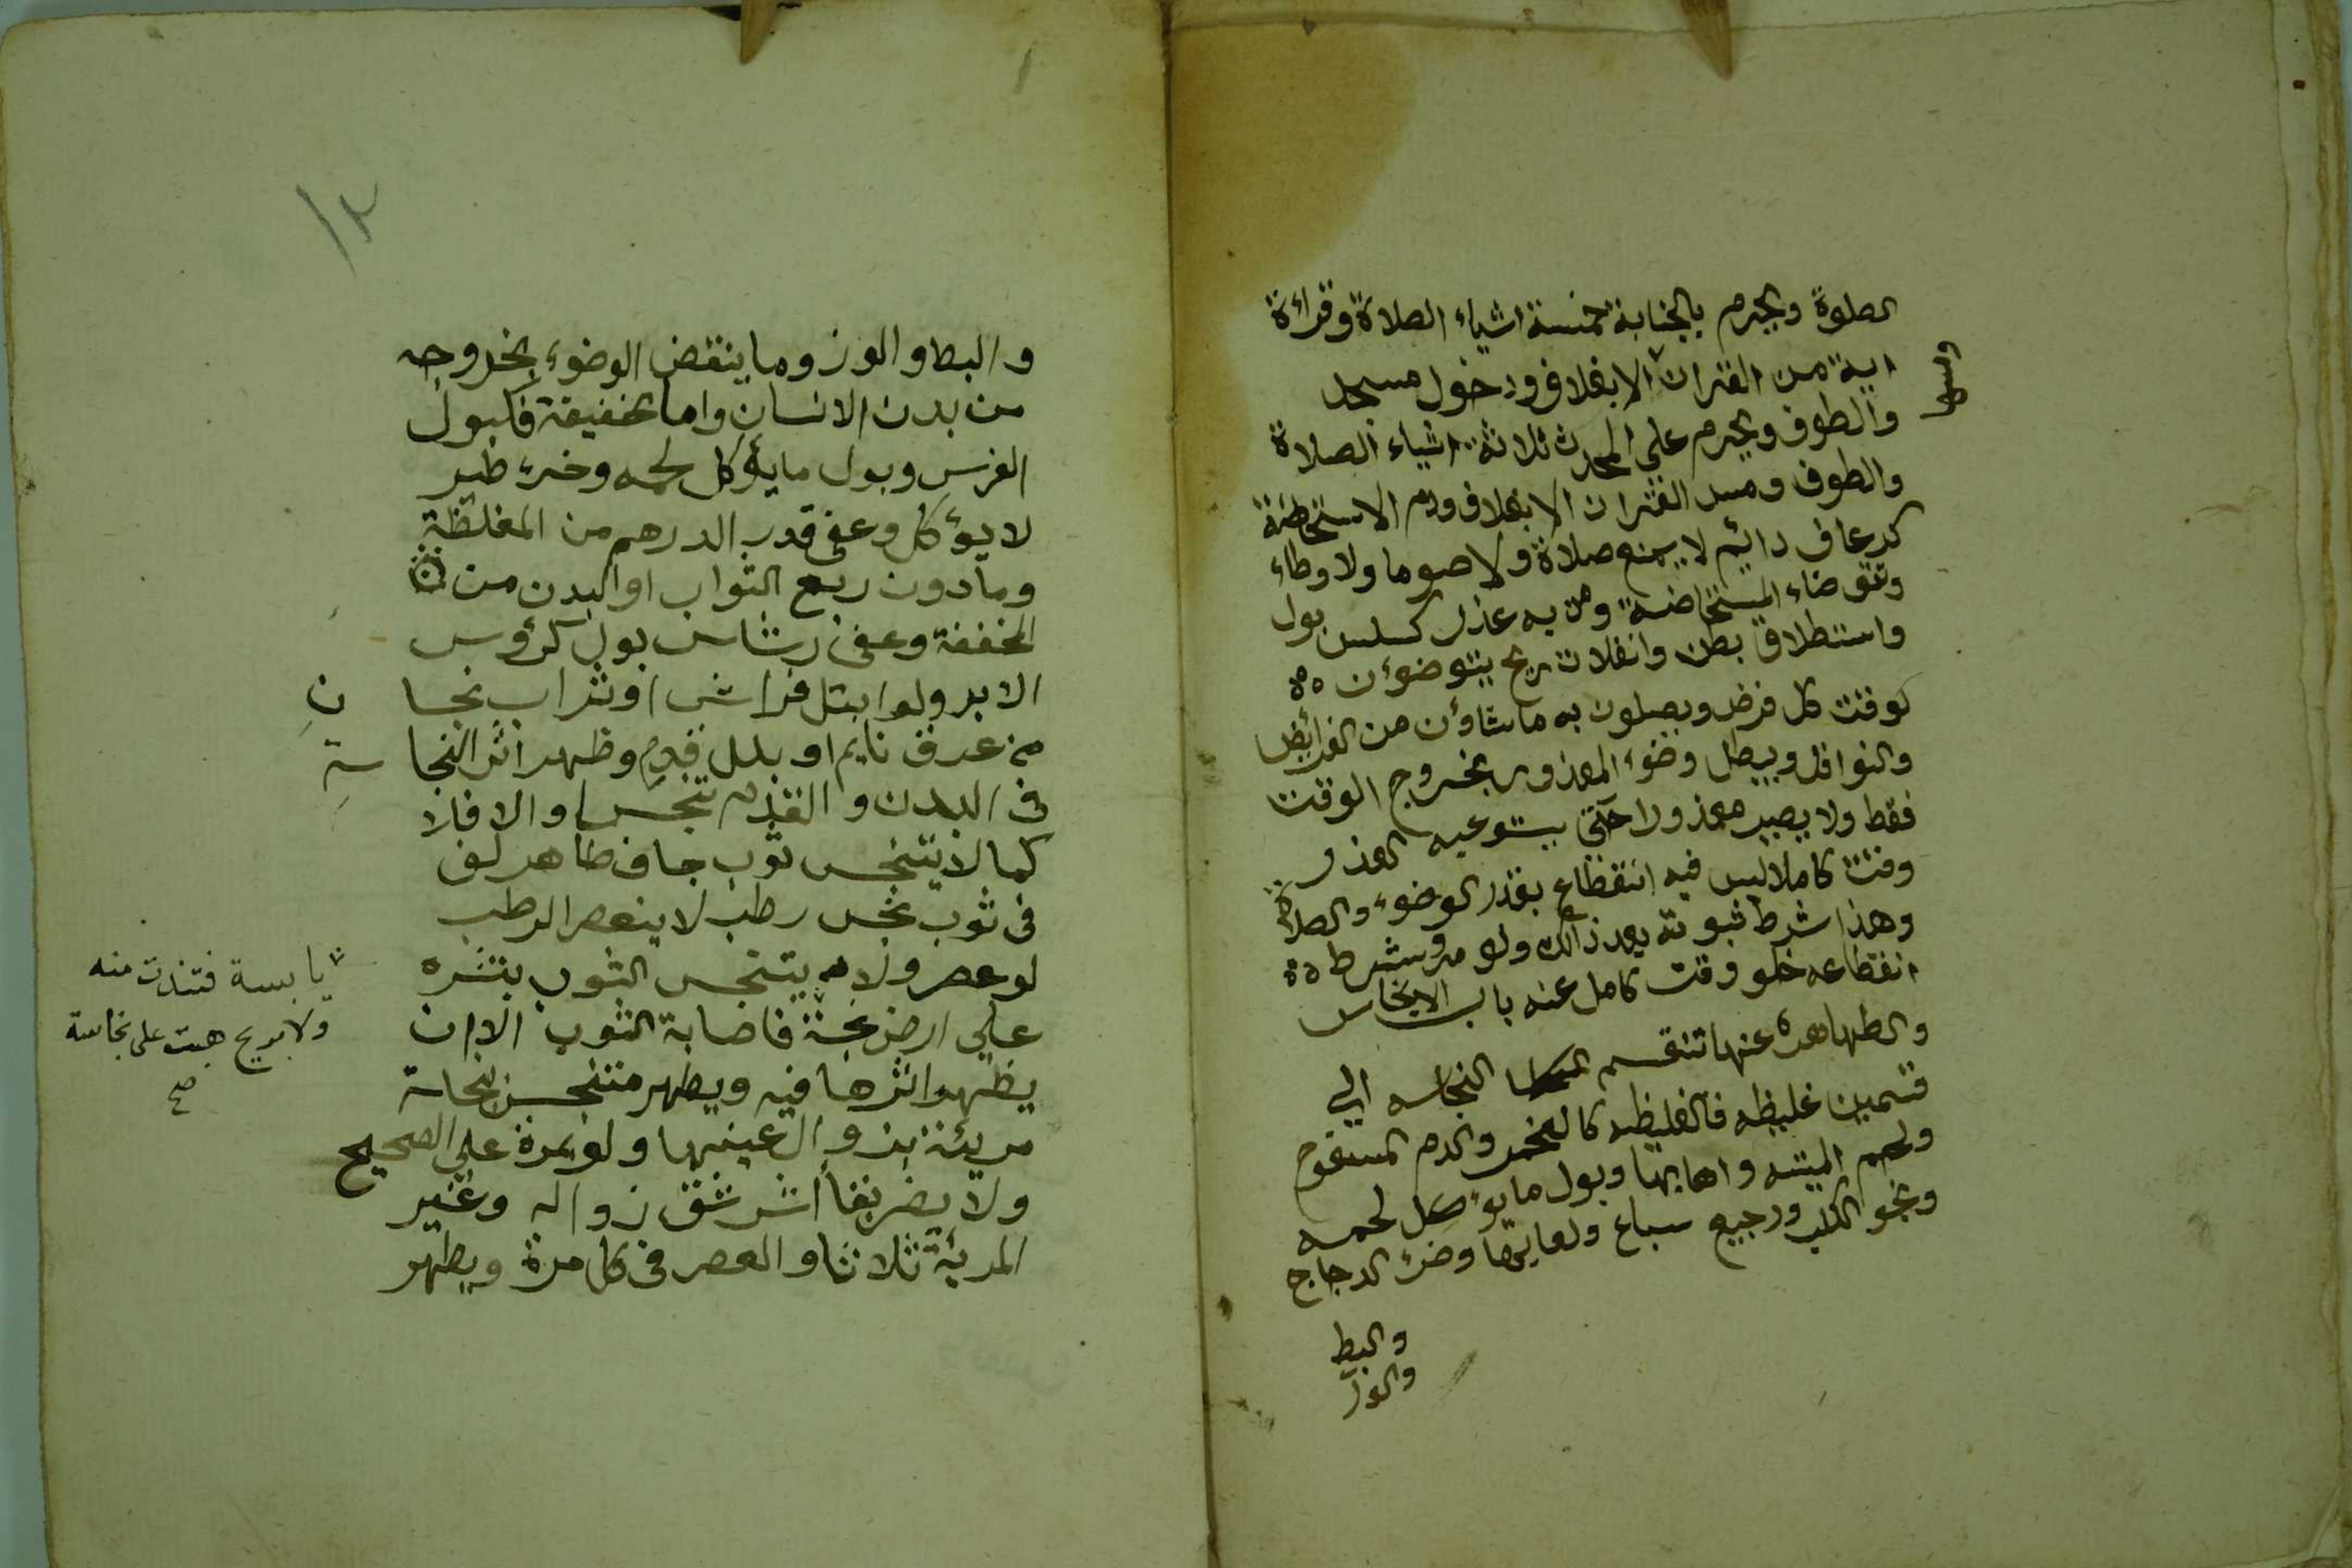 الصلوة ويحرم بالجنابة خمسة اشياء الصلاة وقراءة
اية من القران الا بغلاف ودخول مسجد
ومسها
والطوف ويحرم على المحدث ثلاثة اشياء الصلاة
والطوف ومس القران الا بغلاف ودم الاستحاظة
كرعاف دايم لا يمنع صلاة ولا صوما ولا وطاء
وتتوضاء المستحاضة ومن به عذر كسلس بول
واستطلاق بطن وانفلات ريح يتوضؤن
لوقت كل فرض ويصلون به ماشاؤن من الفرائض
والنوافل ويبطل وضوء المعذور بخروج الوقت
فقط ولا يصير معذورا حتى يستوعبه العذر
وقتا كاملا ليس فيه انتقطاع بقدر الوضوء والصلاة
وهذا شرط ثبوته بعد ذالك ولو مرة وشرط
انقطاعه خلو وقت كامل عنه باب الانجاس
والطهاهرة عنها تنقسم النجاسه الي
قسمين غليظه فالغليظه كالخمر والدم المسفوح
ولحم الميته واهابها وبول ما يؤكل لحمه
ونجو الكلب ورجيع سباع ولعابها وخرء الدجاج
والبط
والوز
والبط والوز وما ينقض الوضوء بخروجه
من بدن الانسان واما خفيفة فكبول
الفرس وبول ما يؤكل لحمه وخرء طير
لا يؤكل وعفى قدر الدرهم من المغلظة
وما دون ربع الثواب او البدن من
المخففة وعفى رشاش بول كرؤس
الابر ولو ابتل فراش او تراب نجسان
من عرق نايم او بلل قدم وظهر اثر النجاسة
في البدن والقدم تنجسا والا فلا
كما لا يتنجس ثوب جاف طاهر لف
في ثوب نجس رطب لا ينعصر الرطب
لو عصر ولا يتنجس الثوب بنشره
على ارض نجسة فاصابة الثوب الا ان
يابسة فتندت منه
ولا بريح هبت على نجاسة
صح
يظهر اثرها فيه ويطهر متنجس بنجاسة
مريئة بزوال عينها ولو بمرة على الصحيح
ولا يضر بقا اثر شق زواله وغير
المريئة ثلاثا والعصر في كل مرة ويطهر